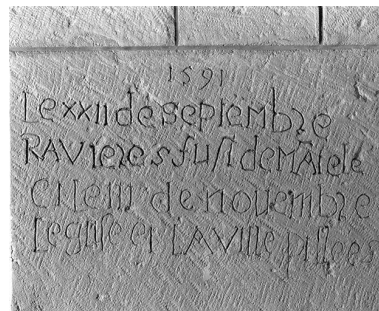 1591
Le XXII de septembre
RAVieres fust demātele
et le III de novembre
L'eglise et LA Ville pillees